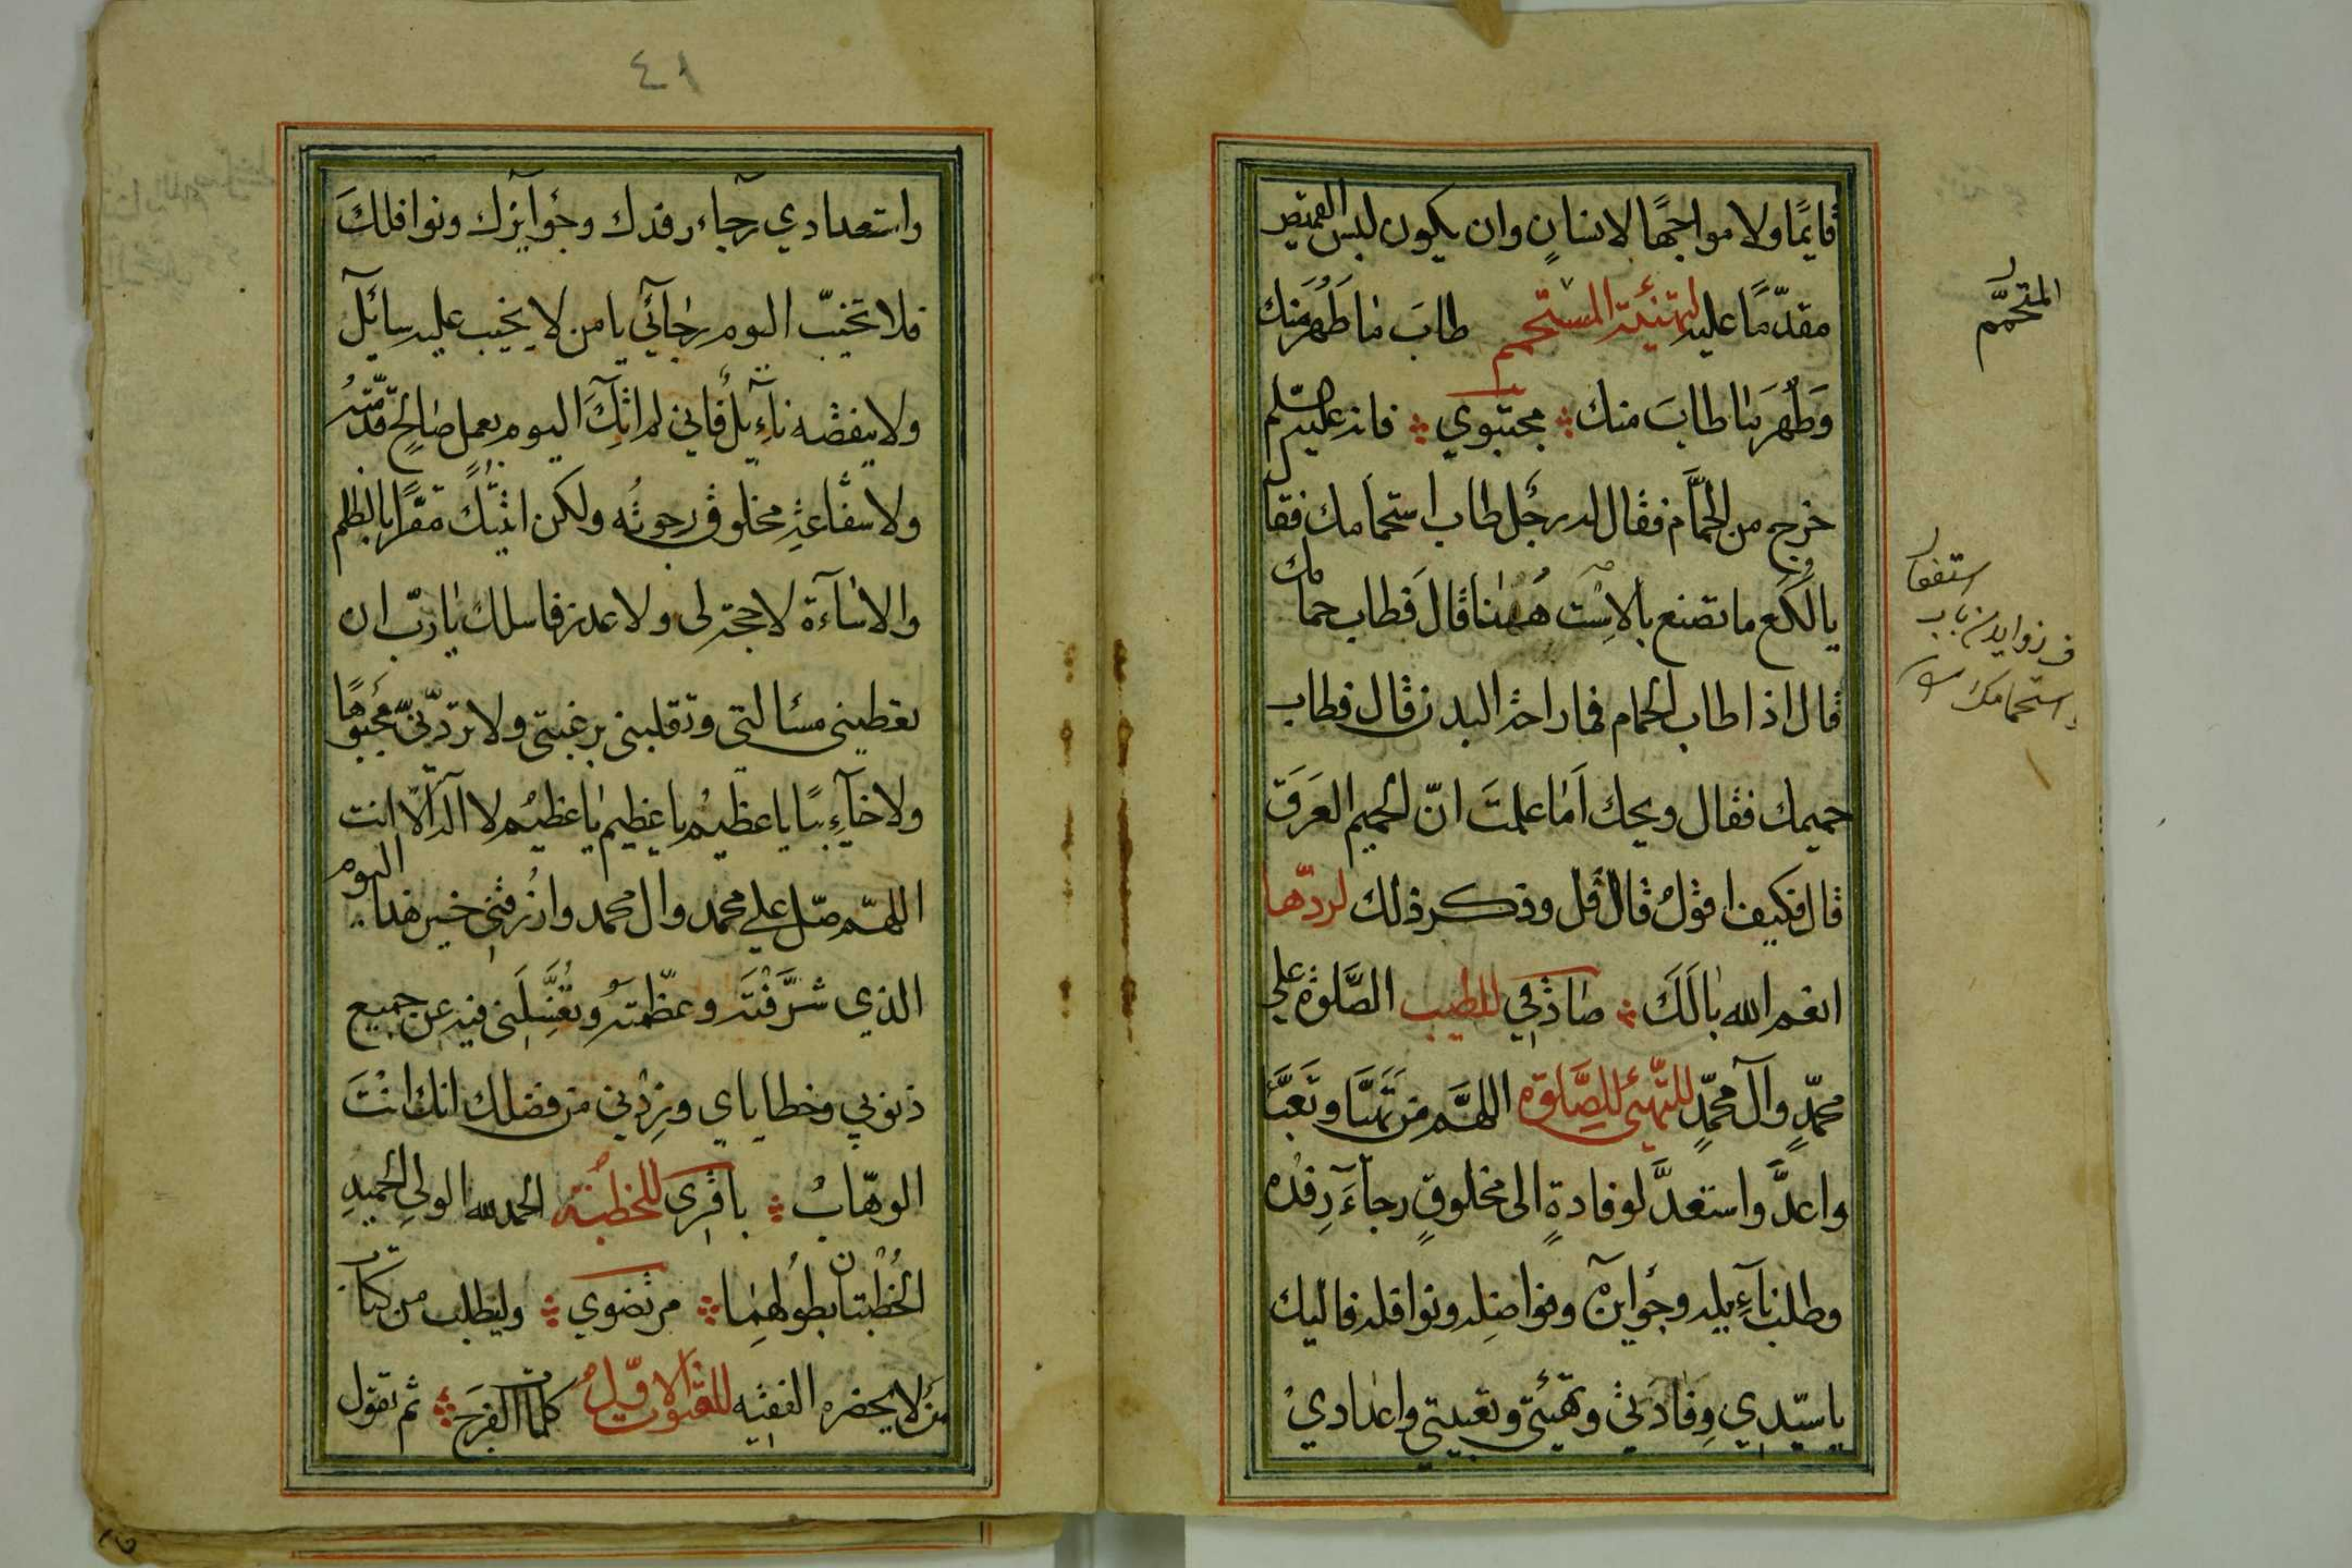 قايمًا ولا مواجهًا لانسانٍ وان يكون لبس القميص
مقدّمًا عليه لتهنئة المستحم طابَ ما طَهُرَ منك
وَطَهُرَ ما طابَ منك مجتبوي فانه عليه السّلم
خرج من الحمّام فقال له رجُل طاب استحمامك فقا
يا لُكَع وما تصنع بالاِسْت هٰهُنا قالَ فطاب حمامك
قال اذا طاب الحمام فما راحة البدن قال فطاب
حميمك فقال ويحك اَمَا علمتَ انّ الحميم العَرَق
قال فكيف اقولُ قال قل وذكر ذلك لردّها
انعم الله بالَكَ صادقي للطيب الصَّلوة على
محمّدٍ وآل محمّدٍ للتهيّئ للصَّلوة اللهمَّ مَن تَهيَّا وتَعَبَّا
واعدَّ واستعدَّ لوفادةٍ الى مخلوقٍ رجآءَ رِفْده
وطلب نآئِله وجوايزه وفواضِله ونوافله فاليك
يا سيّدي وِفادَتي وتهيئتي وتعبيتي واعدادي
المتحمّم
استغفار
استحمامك
٤١
واستعدادي رجآء رفدك وجوآيزك ونوافلكَ
فلا تخيّب اليوم رجآئي يا من لا يخيب عليه سآئل
ولا ينقصه نآئِل فاني لم اتكَ اليوم بعمل صالحٍ قدّمتُه
ولا شفاعة مخلوق رجوتُه ولكن اتيتك مقرًا بالظلم
والاسآءة لا حجة لي ولا عذر فاسالك يا ربّ ان
تعطيني مسئالتي وتقلبني برغبتي ولا تردّني مجبوهًا
ولا خآئِبًا يا عظيمُ يا عظيم يا عظيمُ لا اله الّا انت
اللهمّ صلّ على محمد وال محمد وارزُقني خير هذا اليوم
الذي شرَّفْتَه وعظّمتَه وتُغَسِّلَني فيه عن جميع
ذنوبي وخطاياي وزِدْني من فضلك انك انْتَ
الوهّابُ باقري للخطبة الحمد لله الولي الحميدِ
الخُطْبتان بطولهِما مرتضوي وليطلب من كتاب
مَن لا يحضره الفقيه للقنوت الاوّل كلمات الفرَج ثم تقول